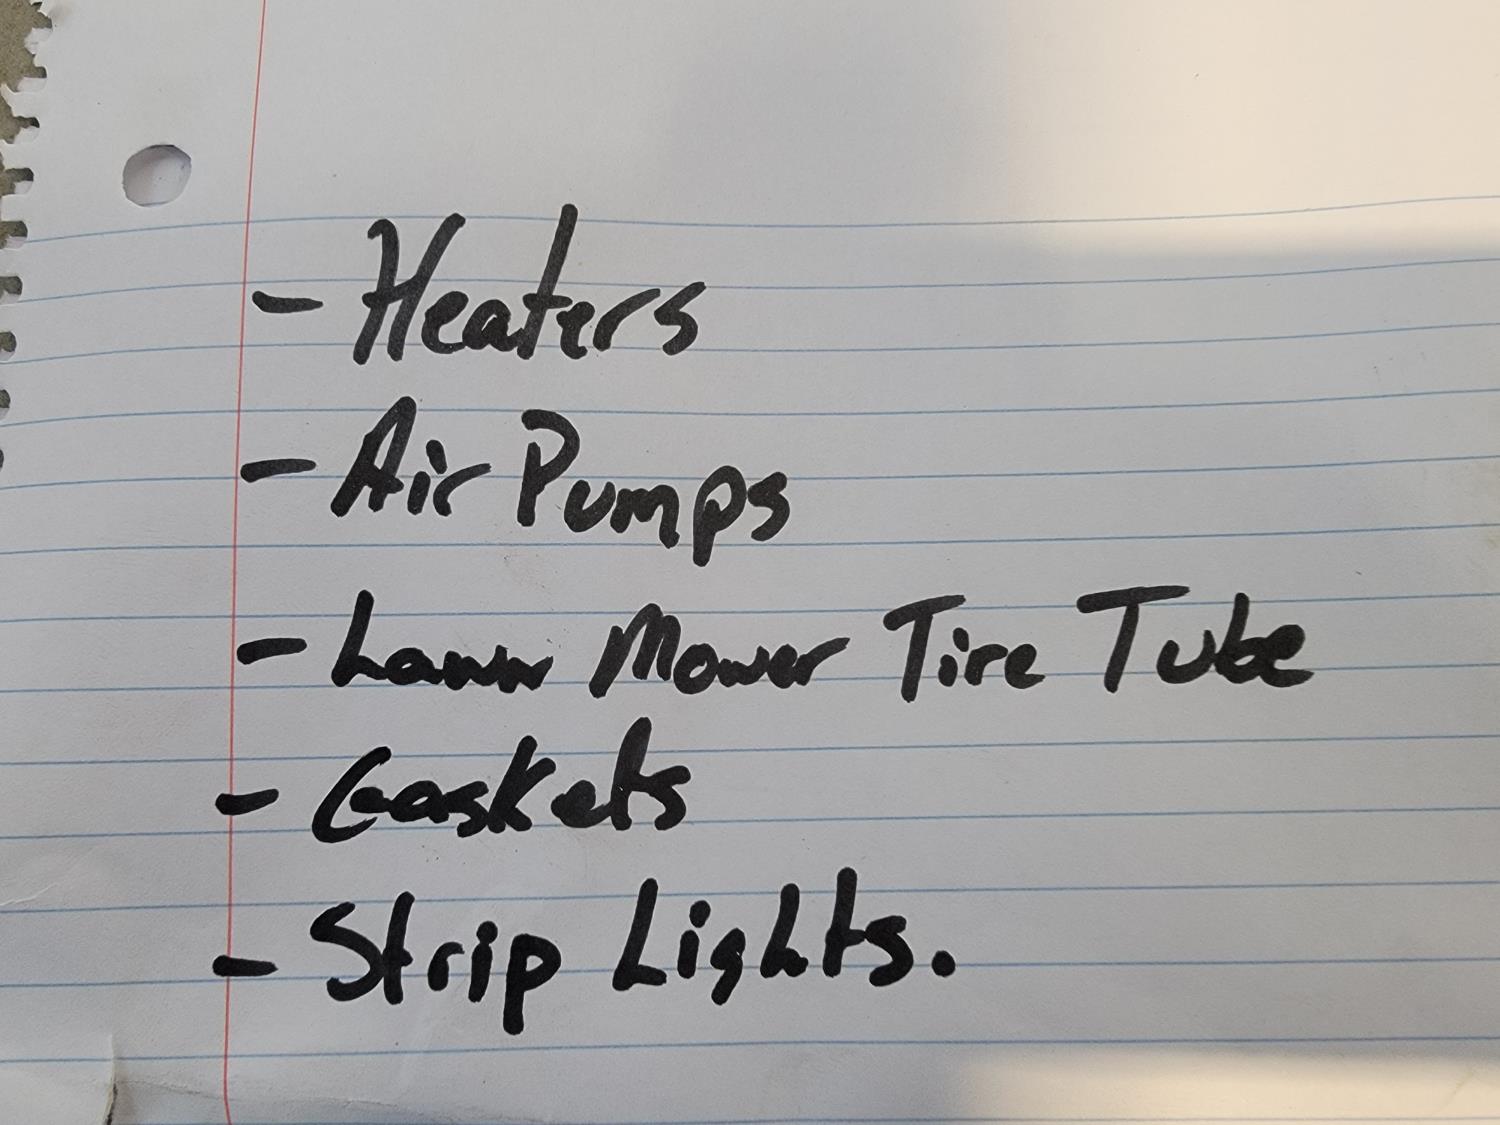 - Heaters
- Air Pumps
- Lawn Mower Tire Tube
- Gaskets
- Strip Lights.